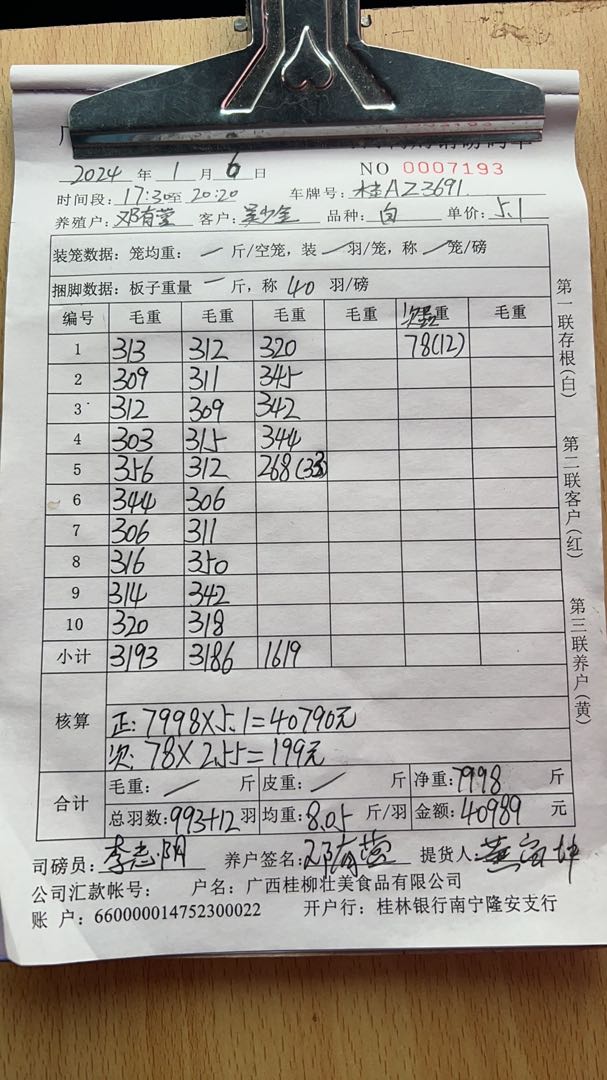 2024 年 1 月 6 日 NO 0007193
时间段: 17:30至 20:20 车牌号: 桂AZ3691
养殖户: 邓有萱 客户: 吴少全 品种: 白 单价: 5.1
装笼数据: 笼均重: 一 斤/空笼, 装 一 羽/笼, 称 一 笼/磅
捆脚数据: 板子重量 一 斤, 称 40 羽/磅
编号 毛重 毛重 毛重 毛重 重 毛重
1 313 312 320 78(12)
2 309 311 345
3 312 309 342
4 303 315 344
5 356 312 268(33)
6 344 306
7 306 311
8 316 350
9 314 342
10 320 318
小计 3193 3186 1619
核算
正: 7998×5.1=40790元
次: 78×2.55=199元
合计
毛重: 一 斤 皮重: 一 斤 净重: 7998 斤
总羽数: 993+12 羽 均重: 8.05 斤/羽 金额: 40989 元
司磅员: 李志阴 养户签名: 提货人:
公司汇款帐号: 户名: 广西桂柳壮美食品有限公司
账 户: 660000014752300022 开户行: 桂林银行南宁隆安支行
第一联存根(白)
第二联客户(红)
第三联养户(黄)